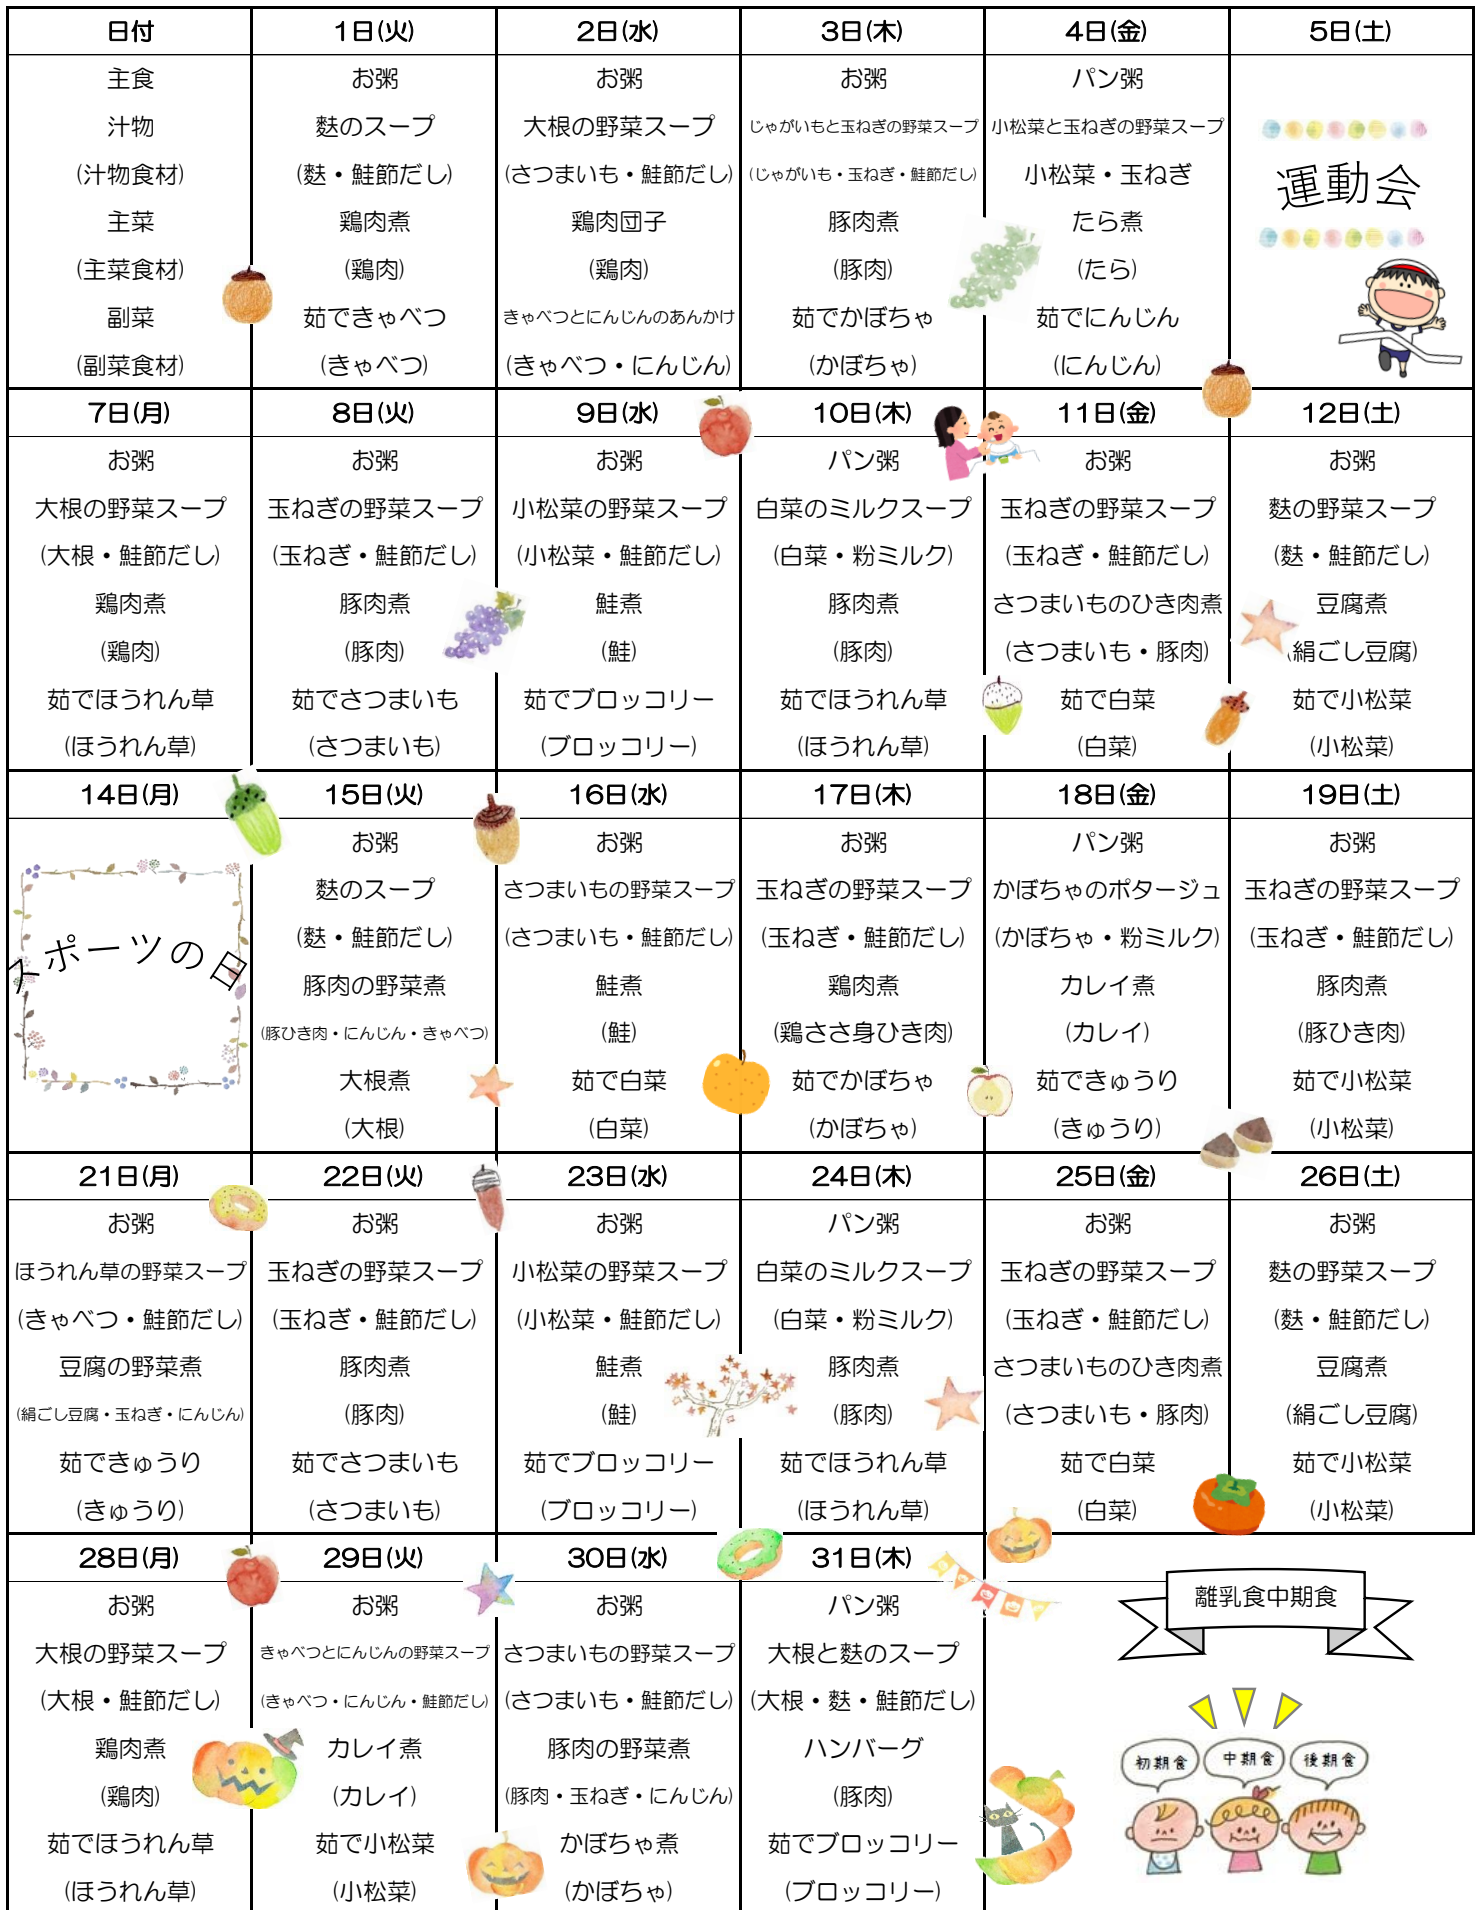 日付 1日(火) 2日(水) 3日(木) 4日(金) 5日(土)
主食 お粥 お粥 お粥 パン粥
汁物 麩のスープ 大根の野菜スープ じゃがいもと玉ねぎの野菜スープ 小松菜と玉ねぎの野菜スープ
(汁物食材) (麩・鮭節だし) (さつまいも・鮭節だし) (じゃがいも・玉ねぎ・鮭節だし) 小松菜・玉ねぎ 運動会
主菜 鶏肉煮 鶏肉団子 豚肉煮 たら煮
(主菜食材) (鶏肉) (鶏肉) (豚肉) (たら)
副菜 茹できゃべつ きゃべつとにんじんのあんかけ 茹でかぼちゃ 茹でにんじん
(副菜食材) (きゃべつ) (きゃべつ・にんじん) (かぼちゃ) (にんじん)
7日(月) 8日(火) 9日(水) 10日(木) 11日(金) 12日(土)
お粥 お粥 お粥 パン粥 お粥 お粥
大根の野菜スープ 玉ねぎの野菜スープ 小松菜の野菜スープ 白菜のミルクスープ 玉ねぎの野菜スープ 麩の野菜スープ
(大根・鮭節だし) (玉ねぎ・鮭節だし) (小松菜・鮭節だし) (白菜・粉ミルク) (玉ねぎ・鮭節だし) (麩・鮭節だし)
鶏肉煮 豚肉煮 鮭煮 豚肉煮 さつまいものひき肉煮 豆腐煮
(鶏肉) (豚肉) (鮭) (豚肉) (さつまいも・豚肉) (絹ごし豆腐)
茹でほうれん草 茹でさつまいも 茹でブロッコリー 茹でほうれん草 茹で白菜 茹で小松菜
(ほうれん草) (さつまいも) (ブロッコリー) (ほうれん草) (白菜) (小松菜)
14日(月) 15日(火) 16日(水) 17日(木) 18日(金) 19日(土)
お粥 お粥 お粥 パン粥 お粥
麩のスープ さつまいもの野菜スープ 玉ねぎの野菜スープ かぼちゃのポタージュ 玉ねぎの野菜スープ
スポーツの日 (麩・鮭節だし) (さつまいも・鮭節だし) (玉ねぎ・鮭節だし) (かぼちゃ・粉ミルク) (玉ねぎ・鮭節だし)
豚肉の野菜煮 鮭煮 鶏肉煮 カレイ煮 豚肉煮
(豚ひき肉・にんじん・きゃべつ) (鮭) (鶏ささ身ひき肉) (カレイ) (豚ひき肉)
大根煮 茹で白菜 茹でかぼちゃ 茹できゅうり 茹で小松菜
(大根) (白菜) (かぼちゃ) (きゅうり) (小松菜)
21日(月) 22日(火) 23日(水) 24日(木) 25日(金) 26日(土)
お粥 お粥 お粥 パン粥 お粥 お粥
ほうれん草の野菜スープ 玉ねぎの野菜スープ 小松菜の野菜スープ 白菜のミルクスープ 玉ねぎの野菜スープ 麩の野菜スープ
(きゃべつ・鮭節だし) (玉ねぎ・鮭節だし) (小松菜・鮭節だし) (白菜・粉ミルク) (玉ねぎ・鮭節だし) (麩・鮭節だし)
豆腐の野菜煮 豚肉煮 鮭煮 豚肉煮 さつまいものひき肉煮 豆腐煮
(絹ごし豆腐・玉ねぎ・にんじん) (豚肉) (鮭) (豚肉) (さつまいも・豚肉) (絹ごし豆腐)
茹できゅうり 茹でさつまいも 茹でブロッコリー 茹でほうれん草 茹で白菜 茹で小松菜
(きゅうり) (さつまいも) (ブロッコリー) (ほうれん草) (白菜) (小松菜)
28日(月) 29日(火) 30日(水) 31日(木)
お粥 お粥 お粥 パン粥 離乳食中期食
大根の野菜スープ きゃべつとにんじんの野菜スープ さつまいもの野菜スープ 大根と麩のスープ
(大根・鮭節だし) (きゃべつ・にんじん・鮭節だし) (さつまいも・鮭節だし) (大根・麩・鮭節だし)
鶏肉煮 カレイ煮 豚肉の野菜煮 ハンバーグ 初期食 中期食 後期食
(鶏肉) (カレイ) (豚肉・玉ねぎ・にんじん) (豚肉)
茹でほうれん草 茹で小松菜 かぼちゃ煮 茹でブロッコリー
(ほうれん草) (小松菜) (かぼちゃ) (ブロッコリー)